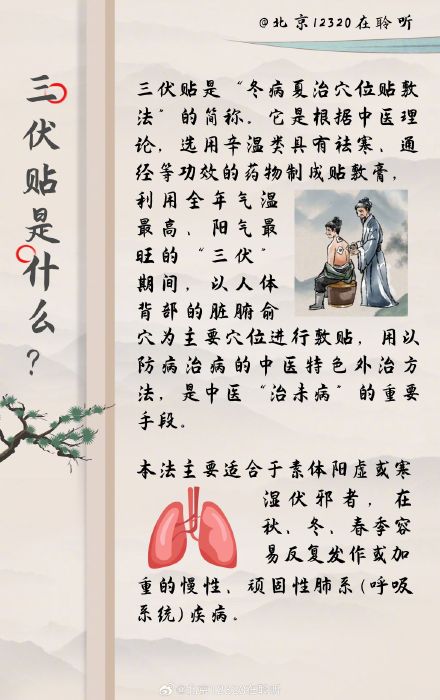 @北京12320在聆听
三伏贴是什么？
三伏贴是“冬病夏治穴位贴敷
法”的简称。它是根据中医理
论，选用辛温类具有祛寒、通
经等功效的药物制成贴敷膏，
利用全年气温
最高、阳气最
旺的“三伏”
期间，以人体
背部的脏腑俞
穴为主要穴位进行敷贴，用以
防病治病的中医特色外治方
法，是中医“治未病”的重要
手段。
本法主要适合于素体阳虚或寒
湿伏邪者，在
秋、冬、春季容
易反复发作或加
重的慢性、顽固性肺系(呼吸
系统)疾病。
@北京12320在聆听